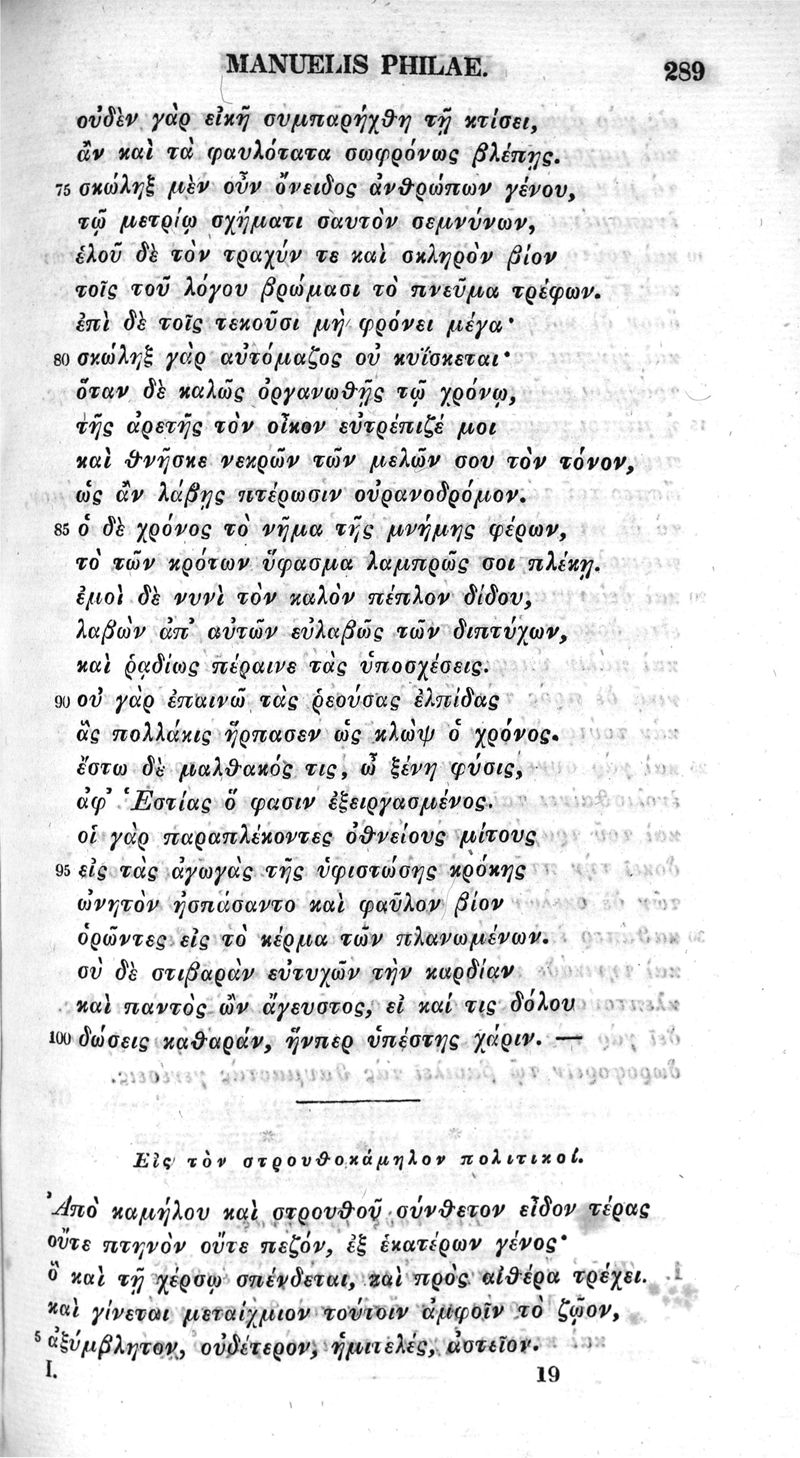 MANUELIS PHILAE. 289
οὐδὲν γὰρ εἰκῆ συμπαρήχθη τῇ κτίσει,
ἂν καὶ τὰ φαυλότατα σωφρόνως βλέπῃς.
75 σκώληξ μὲν οὖν ὄνειδος ἀνθρώπων γένου,
τῷ μετρίῳ σχήματι σαυτὸν σεμνύνων,
ἑλοῦ δὲ τὸν τραχύν τε καὶ σκληρὸν βίον
τοῖς τοῦ λόγου βρώμασι τὸ πνεῦμα τρέφων.
ἐπὶ δὲ τοῖς τεκοῦσι μὴ φρόνει μέγα·
80 σκώληξ γὰρ αὐτόμαζος οὐ κυΐσκεται·
ὅταν δὲ καλῶς ὀργανωθῇς τῷ χρόνῳ,
τῆς ἀρετῆς τὸν οἶκον εὐτρέπιζέ μοι
καὶ θνῆσκε νεκρῶν τῶν μελῶν σου τὸν τόνον,
ὡς ἂν λάβῃς πτέρωσιν οὐρανοδρόμον.
85 ὁ δὲ χρόνος τὸ νῆμα τῆς μνήμης φέρων,
τὸ τῶν κρότων ὕφασμα λαμπρῶς σοι πλέκῃ.
ἐμοὶ δὲ νυνὶ τὸν καλὸν πέπλον δίδου,
λαβὼν ἀπ' αὐτῶν εὐλαβῶς τῶν διπτύχων,
καὶ ῥαδίως πέραινε τὰς ὑποσχέσεις.
90 οὐ γὰρ ἐπαινῶ τὰς ῥεούσας ἐλπίδας
ἃς πολλάκις ἥρπασεν ὡς κλὼψ ὁ χρόνος.
ἔστω δὲ μαλθακός τις, ὦ ξένη φύσις,
ἀφ' Ἑστίας ὅ φασιν ἐξειργασμένος.
οἱ γὰρ παραπλέκοντες ὀθνείους μίτους
95 εἰς τὰς ἀγωγὰς τῆς ὑφιστώσης κρόκης
ὠνητὸν ἠσπάσαντο καὶ φαῦλον βίον
ὁρῶντες εἰς τὸ κέρμα τῶν πλανωμένων.
σὺ δὲ στιβαρὰν εὐτυχῶν τὴν καρδίαν
καὶ παντὸς ὢν ἄγευστος, εἰ καί τις δόλου
100 δώσεις καθαράν, ἥνπερ ὑπέστης χάριν. —
Εἰς τὸν στρουθοκάμηλον πολιτικοί.
Ἀπὸ καμήλου καὶ στρουθοῦ σύνθετον εἶδον τέρας
οὔτε πτηνὸν οὔτε πεζόν, ἐξ ἑκατέρων γένος·
ὃ καὶ τῇ χέρσῳ σπένδεται, καὶ πρὸς αἰθέρα τρέχει.
καὶ γίνεται μεταίχμιον τούτοιν ἀμφοῖν τὸ ζῷον,
5 ἀξύμβλητον, οὐδέτερον, ἡμιτελές, ἀστεῖον.
I. 19